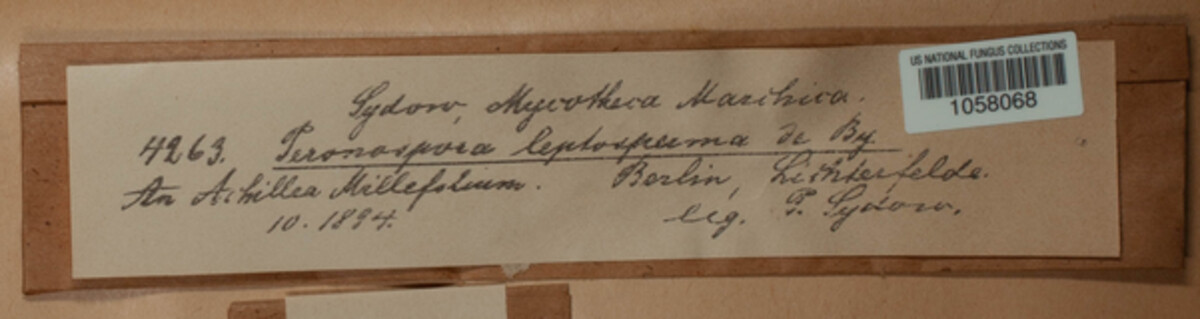 Sydow, Mycotheca Marchica.
4263. Peronospora leptosperma de By.
An Achillea Millefolium. Berlin, Lichterfelde.
10. 1894. leg. P. Sydow.
US NATIONAL FUNGUS COLLECTIONS
1058068